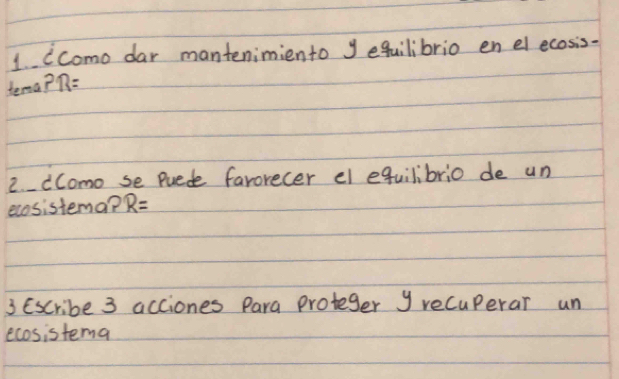 1_ ¿Como dar mantenimiento y equilibrio en el ecosis-
tema? R=
2_ ¿Como se puede favorecer el equilibrio de un
ecosistema? R=
3 Escribe 3 acciones para proteger y recuperar un
ecosistema